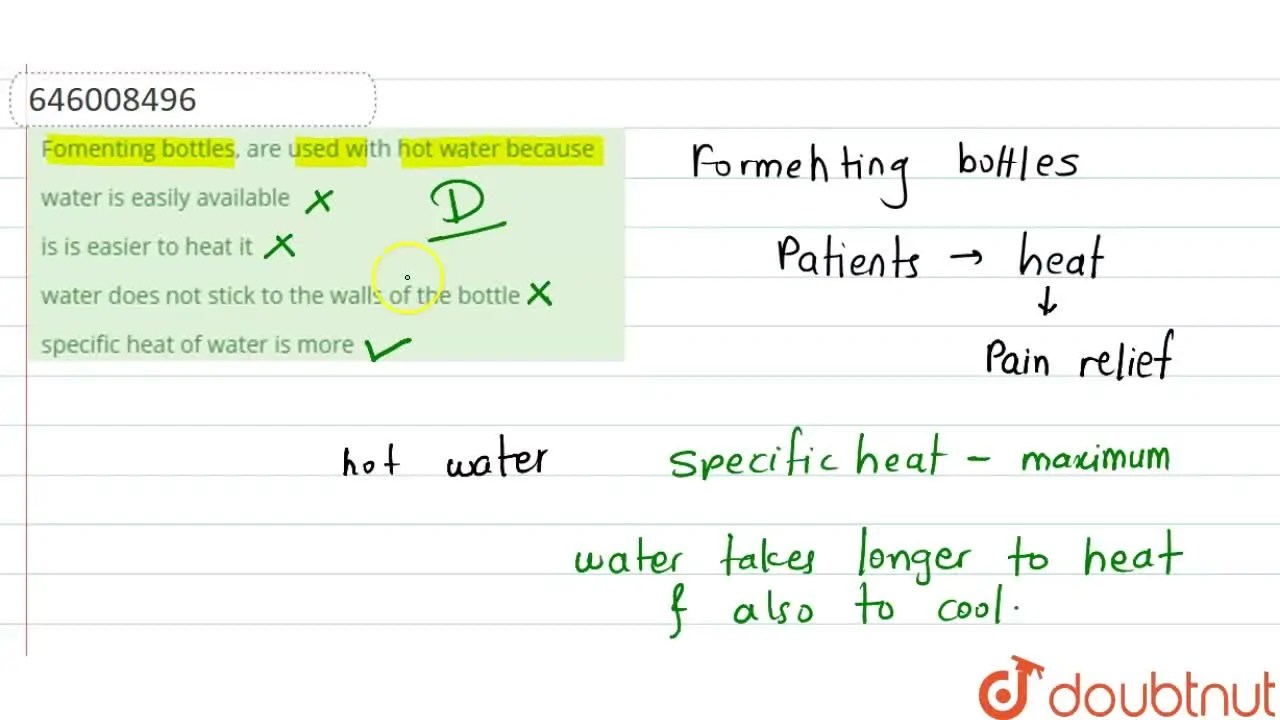 646008496
Fomenting bottles, are used with hot water because
water is easily available X
is is easier to heat it X
water does not stick to the walls of the bottle X
specific heat of water is more ✓
D
Formehting bottles
Patients → heat
↓
Pain relief
hot water specific heat - maximum
water takes longer to heat
f also to cool.
doubtnut